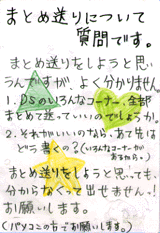 まとめ送りについて
質問です。
まとめ送りをしようと思い
うんですが、よく分かりません。
1.DSのいろんなコーナー、全部
まとめて送っていいのでしょうか。
2.それがいいのなら、あて先は
どう書くの?(いろんなコーナーが
あるから。)
まとめ送りをしようと思っても、
分からなくって出せません。!
お願いします。
(パソコンの方でお願いします。)